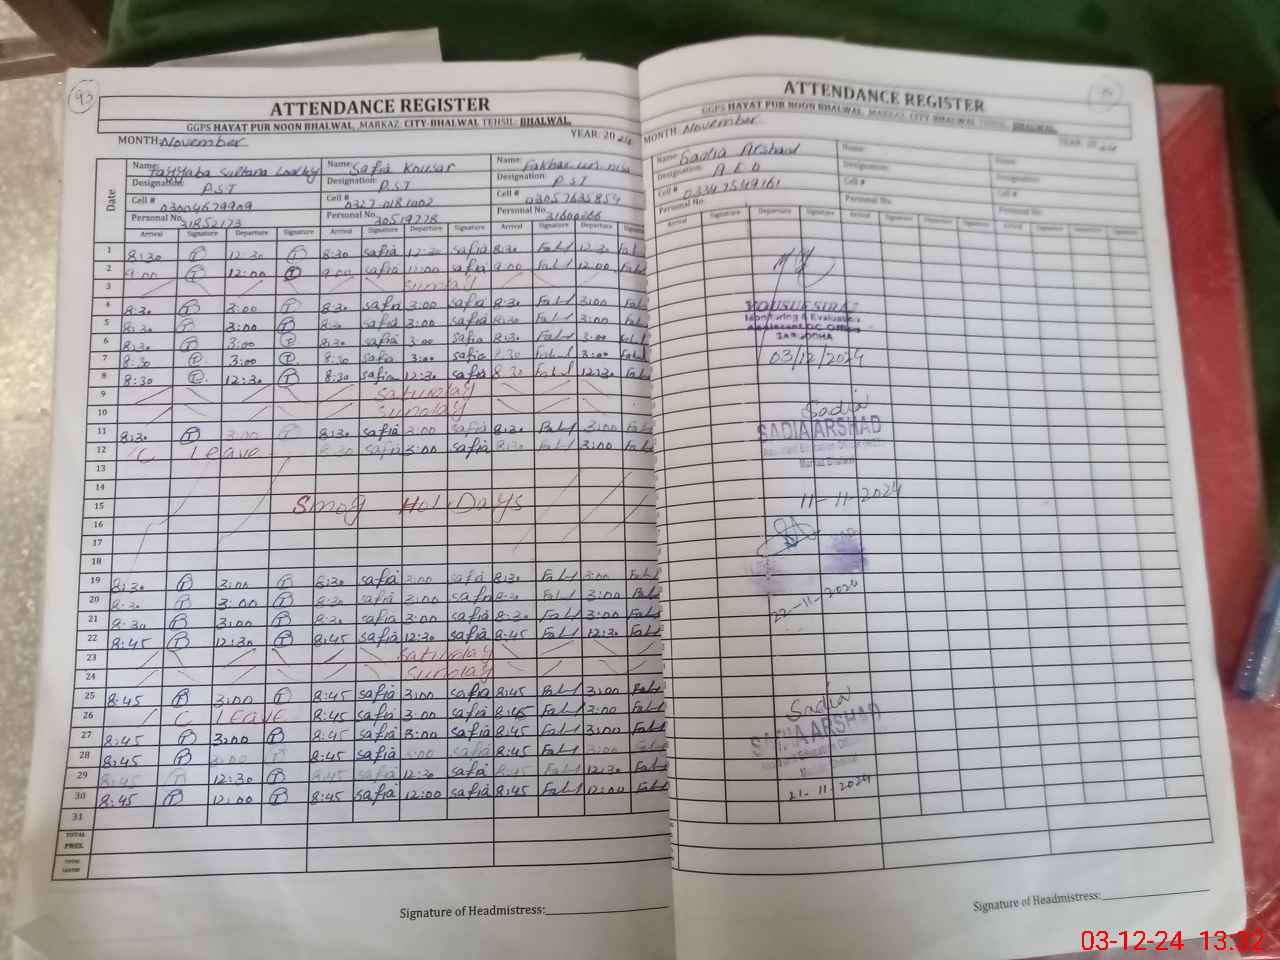 93
ATTENDANCE REGISTER
GGPS HAYAT PUR NOON BHALWAL, MARKAZ. CITY-BHALWAL TEHSIL: BHALWAL.
MONTH: November YEAR: 2024
Date
Name: Sultana Name: Safia Kousar Name: Fakhar un nisa
Designation: P.S.T Designation: P.S.T Designation: P.S.T
Cell # 03004679909 Cell # 0327-0181002 Cell # 03057635854
Personal No. 31852173 Personal No. 30519778 Personal No. 31600266
Arrival Signature Departure Signature Arrival Signature Departure Signature Arrival Signature Departure
1 8:30 T 12:30 T 8:30 safia 12:30 safia 8:30 12:30
2 9:00 T 12:00 T 9:00 safia 12:00 safia 9:00 12:00
3 sunday
4 8:30 T 3:00 T 8:30 safia 3:00 safia 8:30 3:00
5 8:30 T 3:00 T 8:30 safia 3:00 safia 8:30 3:00
6 8:30 T 3:00 T 8:30 safia 3:00 safia 8:30 3:00
7 8:30 T 3:00 T 8:30 safia 3:00 safia 8:30 3:00
8 8:30 T 12:30 T 8:30 safia 12:30 safia 8:30 12:30
9 saturday
10 sunday
11 8:30 T 3:00 T 8:30 safia 3:00 safia 8:30 3:00
12 C Leave 8:30 safia 3:00 safia 8:30 3:00
13
14
15 Smog HoliDays
16
17
18
19 8:30 T 3:00 T 8:30 safia 3:00 safia 8:30 3:00
20 8:30 T 3:00 T 8:30 safia 3:00 safia 8:30 3:00
21 8:30 T 3:00 T 8:30 safia 3:00 safia 8:30 3:00
22 8:45 T 12:30 T 8:45 safia 12:30 safia 8:45 12:30
23 saturday
24 sunday
25 8:45 T 3:00 T 8:45 safia 3:00 safia 8:45 3:00
26 C LEAVE 8:45 safia 3:00 safia 8:45 3:00
27 8:45 T 3:00 T 8:45 safia 3:00 safia 8:45 3:00
28 8:45 T 3:00 T 8:45 safia 3:00 safia 8:45 3:00
29 8:45 T 12:30 T 8:45 safia 12:30 safia 8:45 12:30
30 8:45 T 12:00 T 8:45 safia 12:00 safia 8:45 12:00
31
TOTAL PRES.
TOTAL
Signature of Headmistress:
ATTENDANCE REGISTER
GGPS HAYAT PUR NOON BHALWAL, MARKAZ. CITY-BHALWAL TEHSIL: BHALWAL.
MONTH: November YEAR: 2024
Name: Sadia Arshad Name: Name:
Designation: A E O Designation: Designation:
Cell # 03347549161 Cell # Cell #
Personal No. Personal No. Personal No.
Arrival Signature Departure Signature Arrival Signature Departure Signature Arrival Signature Departure Signature
Monitoring & Evaluation
03/12/2024
Sadia
SADIA ARSHAD
11-11-2024
22-11-2024
Sadia
SADIA ARSHAD
21-11-2024
Signature of Headmistress:
03-12-24 13:32